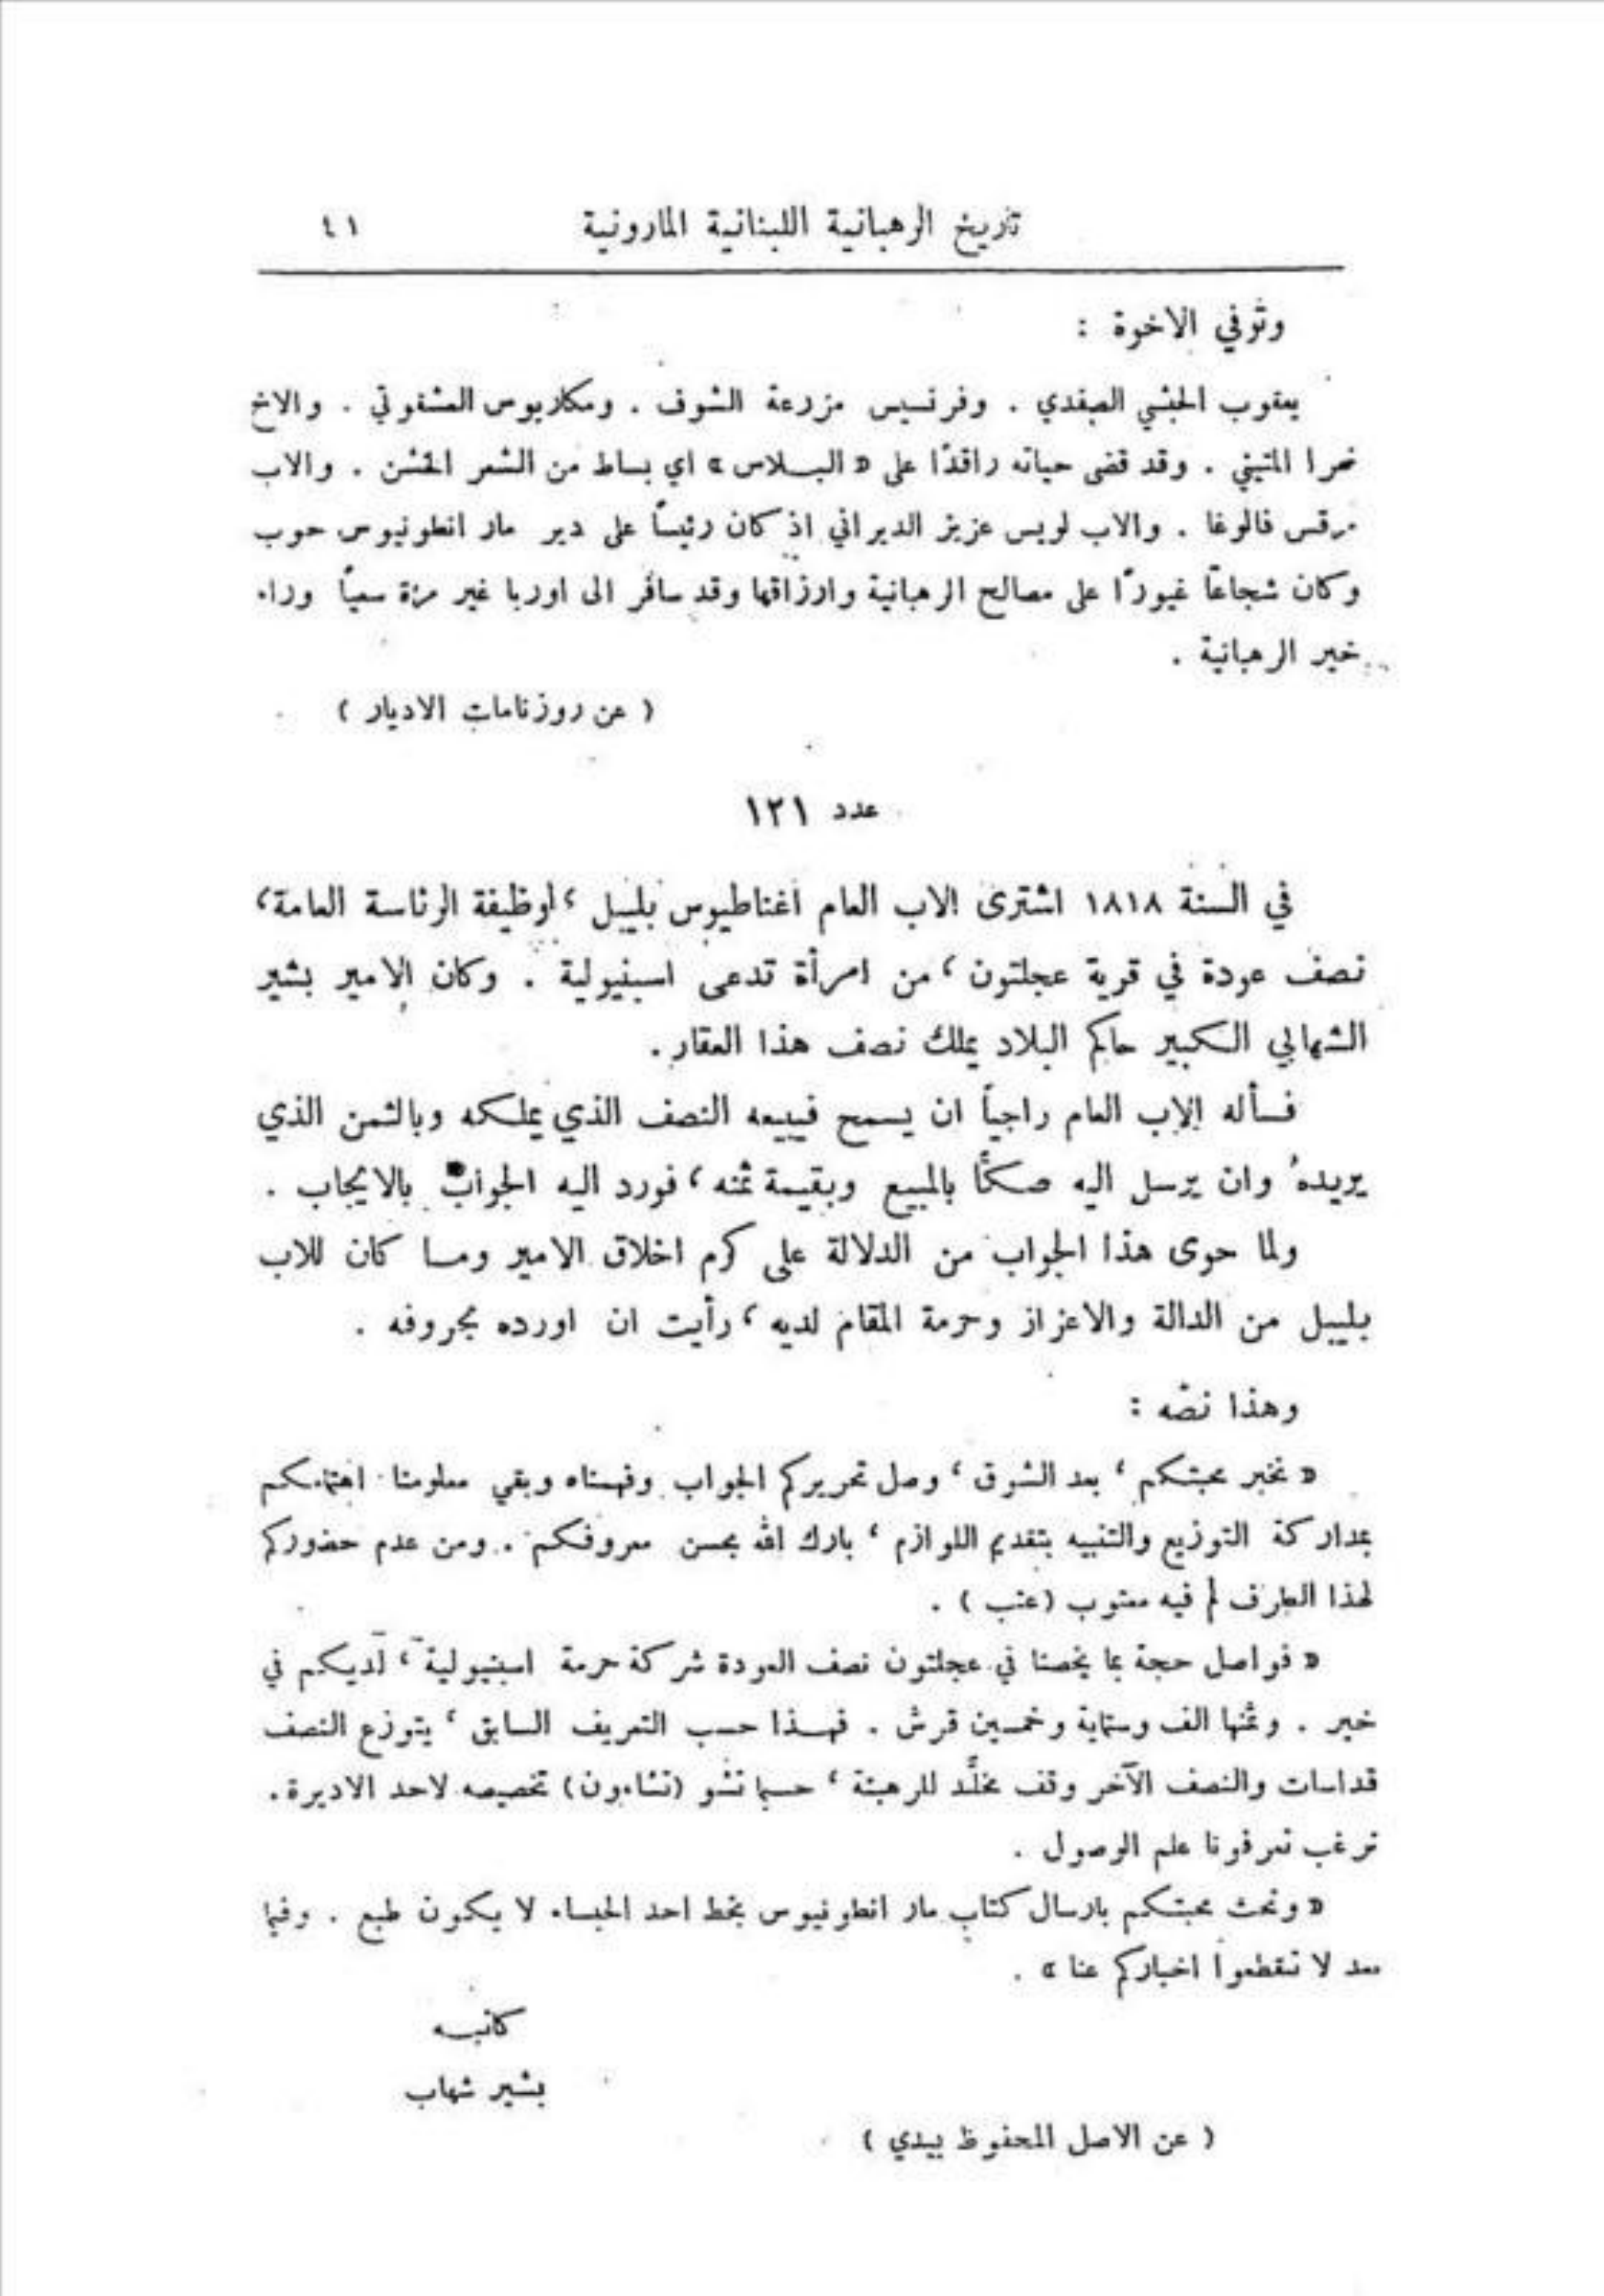 تاريخ الرهبانية اللبنانية المارونية ٤١
وتوفي الاخوة :
يعقوب الحبشي الصفدي . وفرنسيس مزرعة الشوف . ومكاريوس العشقوتي . والاخ
نهرا المتيني . وقد قضى حياته راقدًا على « البـلاس » اي بساط من الشعر الخشن . والاب
مرقس فالوغا . والاب لويس عزيز الديراني اذ كان رئيسًا على دير مار انطونيوس حوب
وكان شجاعًا غيورًا على مصالح الرهبانية وارزاقها وقد سافر الى اوربا غير مرّة سعيًا وراء
خير الرهبانية .
( عن روزنامات الاديار )
عدد ١٢١
في السنة ١٨١٨ اشترى الاب العام اغناطيوس بليبل ، لوظيفة الرئاسة العامة ،
نصف عودة في قرية عجلتون ، من امرأة تدعى اسبنيولية . وكان الامير بشير
الشهابي الكبير حاكم البلاد يملك نصف هذا العقار .
فسأله الاب العام راجياً ان يسمح فيبيعه النصف الذي يملكه وبالثمن الذي
يريدهُ وان يرسل اليه صكًّا بالمبيع وبقيمة ثمنه ، فورد اليه الجواب بالايجاب .
ولما حوى هذا الجواب من الدلالة على كرم اخلاق الامير ومـا كان للاب
بليبل من الدالة والاعزاز وحرمة المقام لديه ، رأيت ان اورده بحروفه .
وهذا نصّه :
« نخبر محبتكم ، بعد الشوق ، وصل تحريركم الجواب وفهمناه وبقي معلومنا اهتمامكم
بمداركة التوزيع والتنبيه بتقديم اللوازم ، بارك الله بحسن معروفكم . ومن عدم حضوركم
لهذا الطرف لم فيه معتوب (عتب ) .
« فواصل حجة بما يخصنا في عجلتون نصف العودة شركة حرمة اسبنيولية ، لديكم في
خير . وثمنها الف وستماية وخمسين قرش . فهـذا حسب التعريف السابق ، يتوزع النصف
قداسات والنصف الآخر وقف مخلَّد للرهبنة ، حسبما تشو (تشاءون) تخصيصه لاحد الاديرة .
نرغب تعرفونا علم الوصول .
« ونحث محبتكم بارسال كتاب مار انطونيوس بخط احد الحبساء لا يكون طبع . وفيما
بعد لا تقطعوا اخباركم عنا » .
كاتبـه
بشير شهاب
( عن الاصل المحفوظ بيدي )